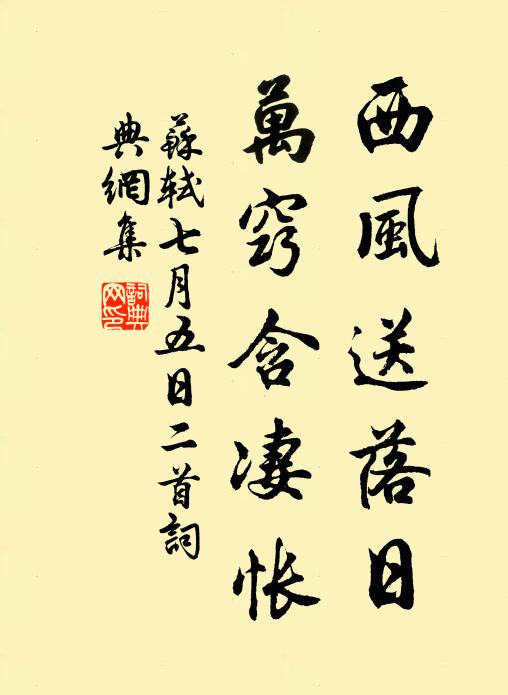 西風送落日
萬竅含淒悵
蘇軾七月五日二首詞
典網集
詞典
网印